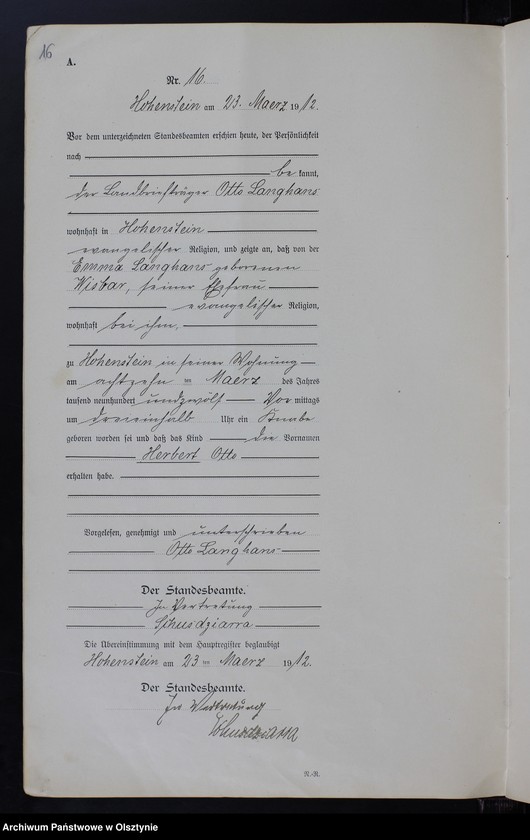 16
A.
Nr. 16.
Hohenstein am 23. Maerz 1912.
Vor dem unterzeichneten Standesbeamten erschien heute, der Persönlichkeit
nach
be kannt,
der Landbriefträger Otto Langhans
wohnhaft in Hohenstein
evangelischer Religion, und zeigte an, daß von der
Emma Langhans geborenen
Wisbar, seiner Ehefrau
evangelischer Religion,
wohnhaft bei ihm,
zu Hohenstein in seiner Wohnung
am achtzehn ten Maerz des Jahres
tausend neunhundert undzwölf Vor mittags
um dreieinhalb Uhr ein Knabe
geboren worden sei und daß das Kind die Vornamen
Herbert Otto
erhalten habe.
Vorgelesen, genehmigt und unterschrieben
Otto Langhans
Der Standesbeamte.
In Vertretung
Schusdziarra
Die Übereinstimmung mit dem Hauptregister beglaubigt
Hohenstein am 23 ten Maerz 1912.
Der Standesbeamte.
In Vertretung
Schusdziarra
N.-R.
Archiwum Państwowe w Olsztynie